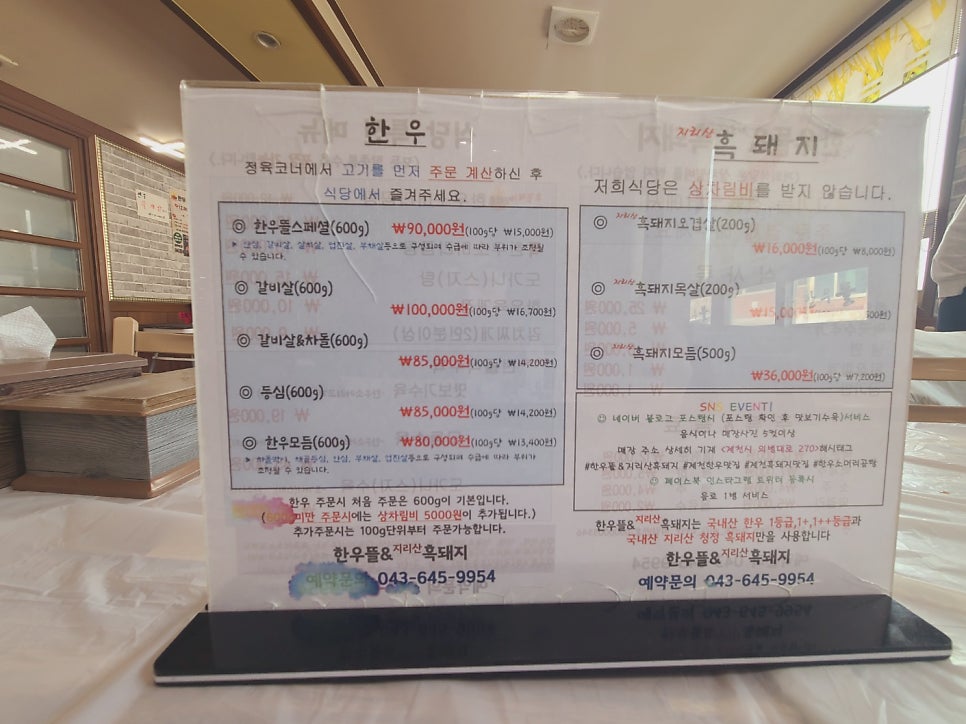 한우
정육코너에서 고기를 먼저 주문 계산하신 후
식당에서 즐겨주세요.
◎ 한우뜰스페셜(600g) ₩90,000원(100g당 ₩15,000원)
▶ 안심, 갈비살, 살치살, 업진살, 부채살등으로 구성되며 수급에 따라 부위가 조정될
수 있습니다.
◎ 갈비살(600g)
₩100,000원(100g당 ₩16,700원)
◎ 갈비살&차돌(600g)
₩85,000원(100g당 ₩14,200원)
◎ 등심(600g)
₩85,000원(100g당 ₩14,200원)
◎ 한우모듬(600g) ₩80,000원(100g당 ₩13,400원)
제골추리, 안심, 부채살, 업진살등으로 구성되며 수급에 따라 부위가
조정될 수 있습니다.
한우 주문시 처음 주문은 600g이 기본입니다.
(600g미만 주문시에는 상차림비 5000원이 추가됩니다.)
추가주문시는 100g단위부터 주문가능합니다.
한우뜰&지리산흑돼지
예약문의 043-645-9954
지리산 흑돼지
저희식당은 상차림비를 받지 않습니다.
◎ 지리산흑돼지오겹살(200g)
₩16,000원(100g당 ₩8,000원)
◎ 지리산흑돼지목살(200g)
₩15,000원
◎ 지리산흑돼지모듬(500g)
₩36,000원(100g당 ₩7,200원)
SNS EVENT!
☺ 네이버 블로그 포스팅시 (포스팅 확인 후 맛보기수육)서비스
음식이나 매장사진 5컷이상
매장 주소 상세히 기재 <제천시 의병대로 270>해시태그
#한우뜰&지리산흑돼지 #제천한우맛집 #제천흑돼지맛집 #한우소머리곰탕
☺ 페이스북 인스타그램 트위터 등록시
음료 1병 서비스
한우뜰&지리산흑돼지는 국내산 한우 1등급,1+,1++등급과
국내산 지리산 청정 흑돼지만을 사용합니다
한우뜰&지리산흑돼지
예약문의 043-645-9954